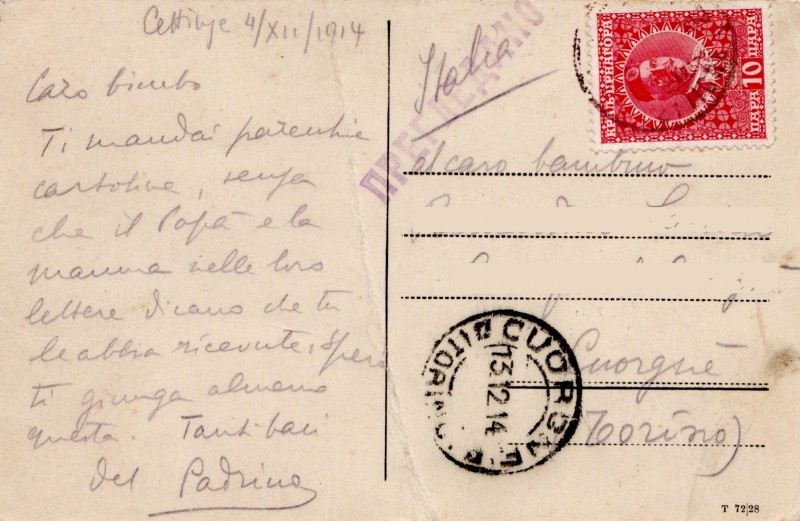 Cettinje 4/XII/1914
Caro bimbo
Ti mandai parecchie
cartoline, senza
che il Papà e la
mamma nelle loro
lettere dicano che tu
le abbia ricevute, spero
ti giunga almeno
questa. Tanti baci
del Padrino
ПРЕГЛЕДАНО
Italia
КРАЉ. ЦРНАГОРА
ПАРА 10 ПАРА
al caro bambino
Cuorgnè
(Torino)
CUORGNE
(TORINO)
13.12.14
T 7228